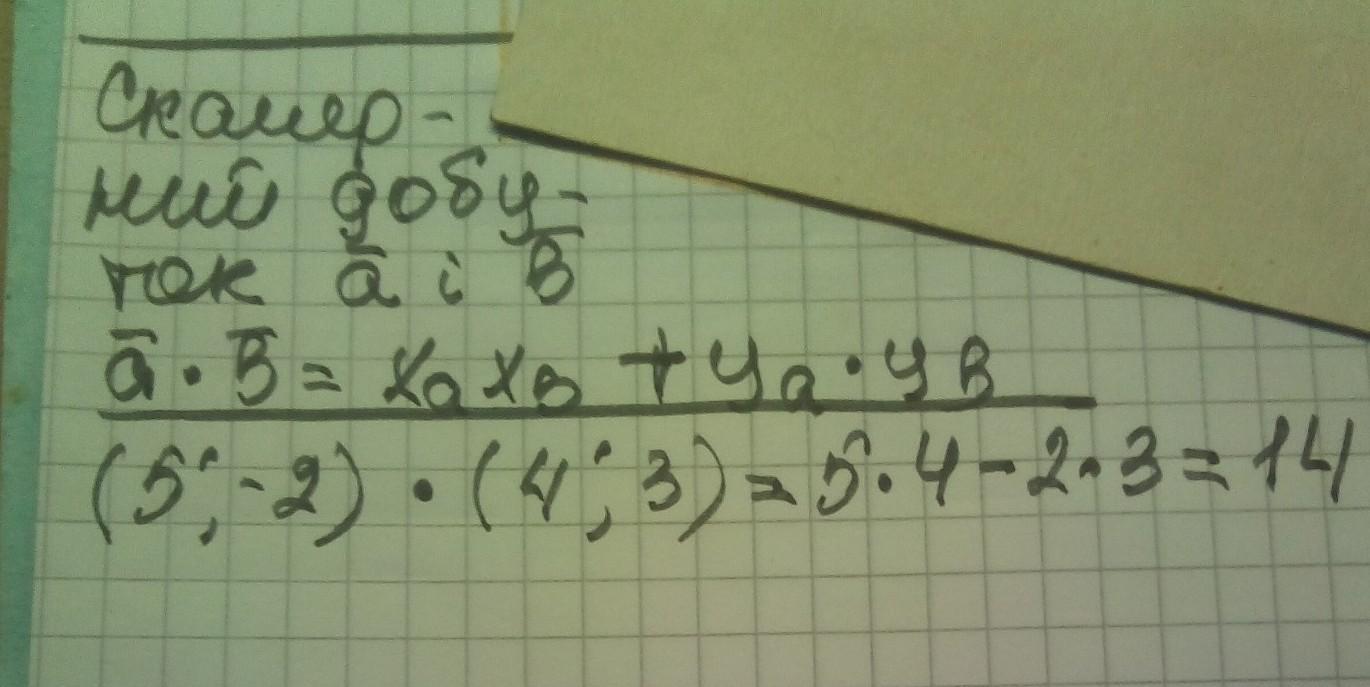 Скаляр-
ний добу-
ток a̅ і b̅
a̅ · b̅ = xₐxᵦ + yₐ · yᵦ
(5; -2) · (4; 3) = 5·4-2·3=14